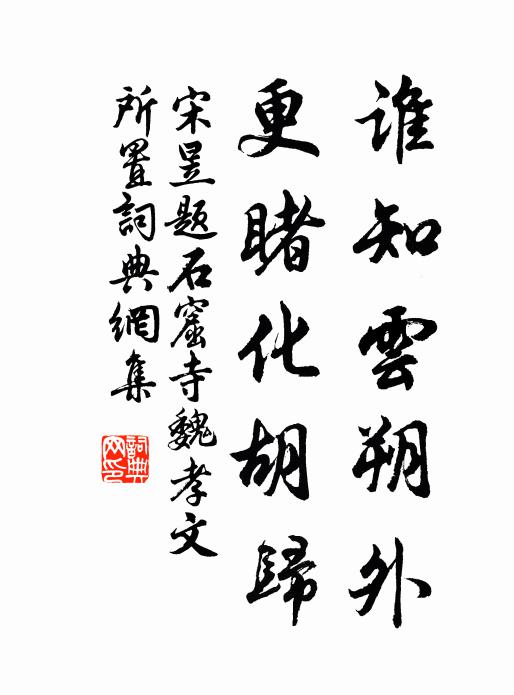 誰知雲朔外
更睹化胡歸
宋昱题石窟寺魏孝文
所置詞典網集
詞典网印